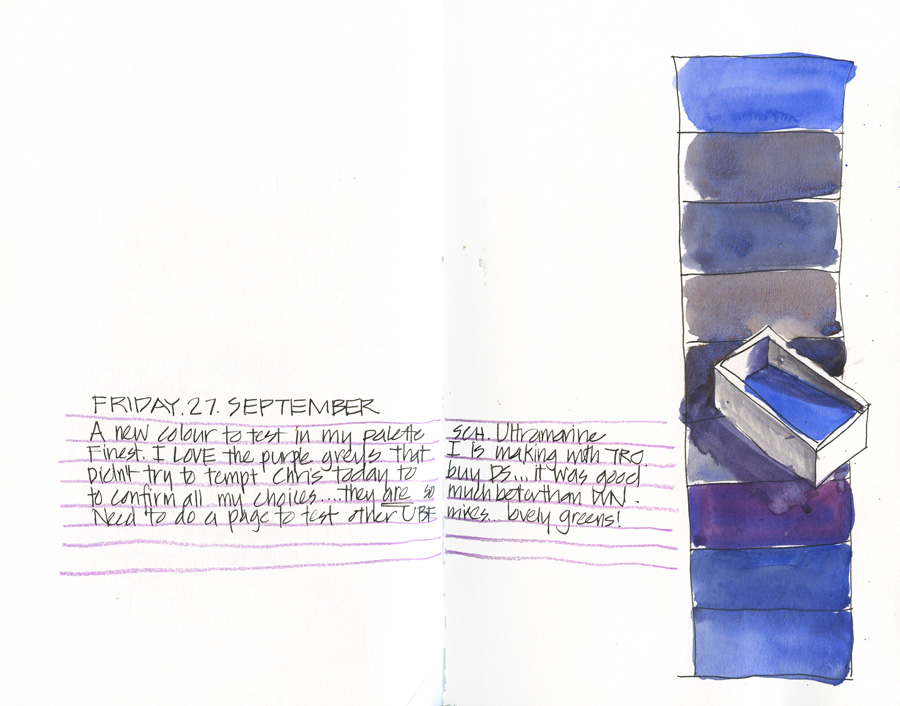 FRIDAY.27. SEPTEMBER
A new colour to test in my palette SCH. Ultramarine
Finest. I LOVE the purple greys that I is making with TRO.
Didn't try to tempt Chris today to buy DS... it was good
to confirm all my choices....they are so much better than DVN.
Need to do a page to test other UBF mixes... lovely greens!